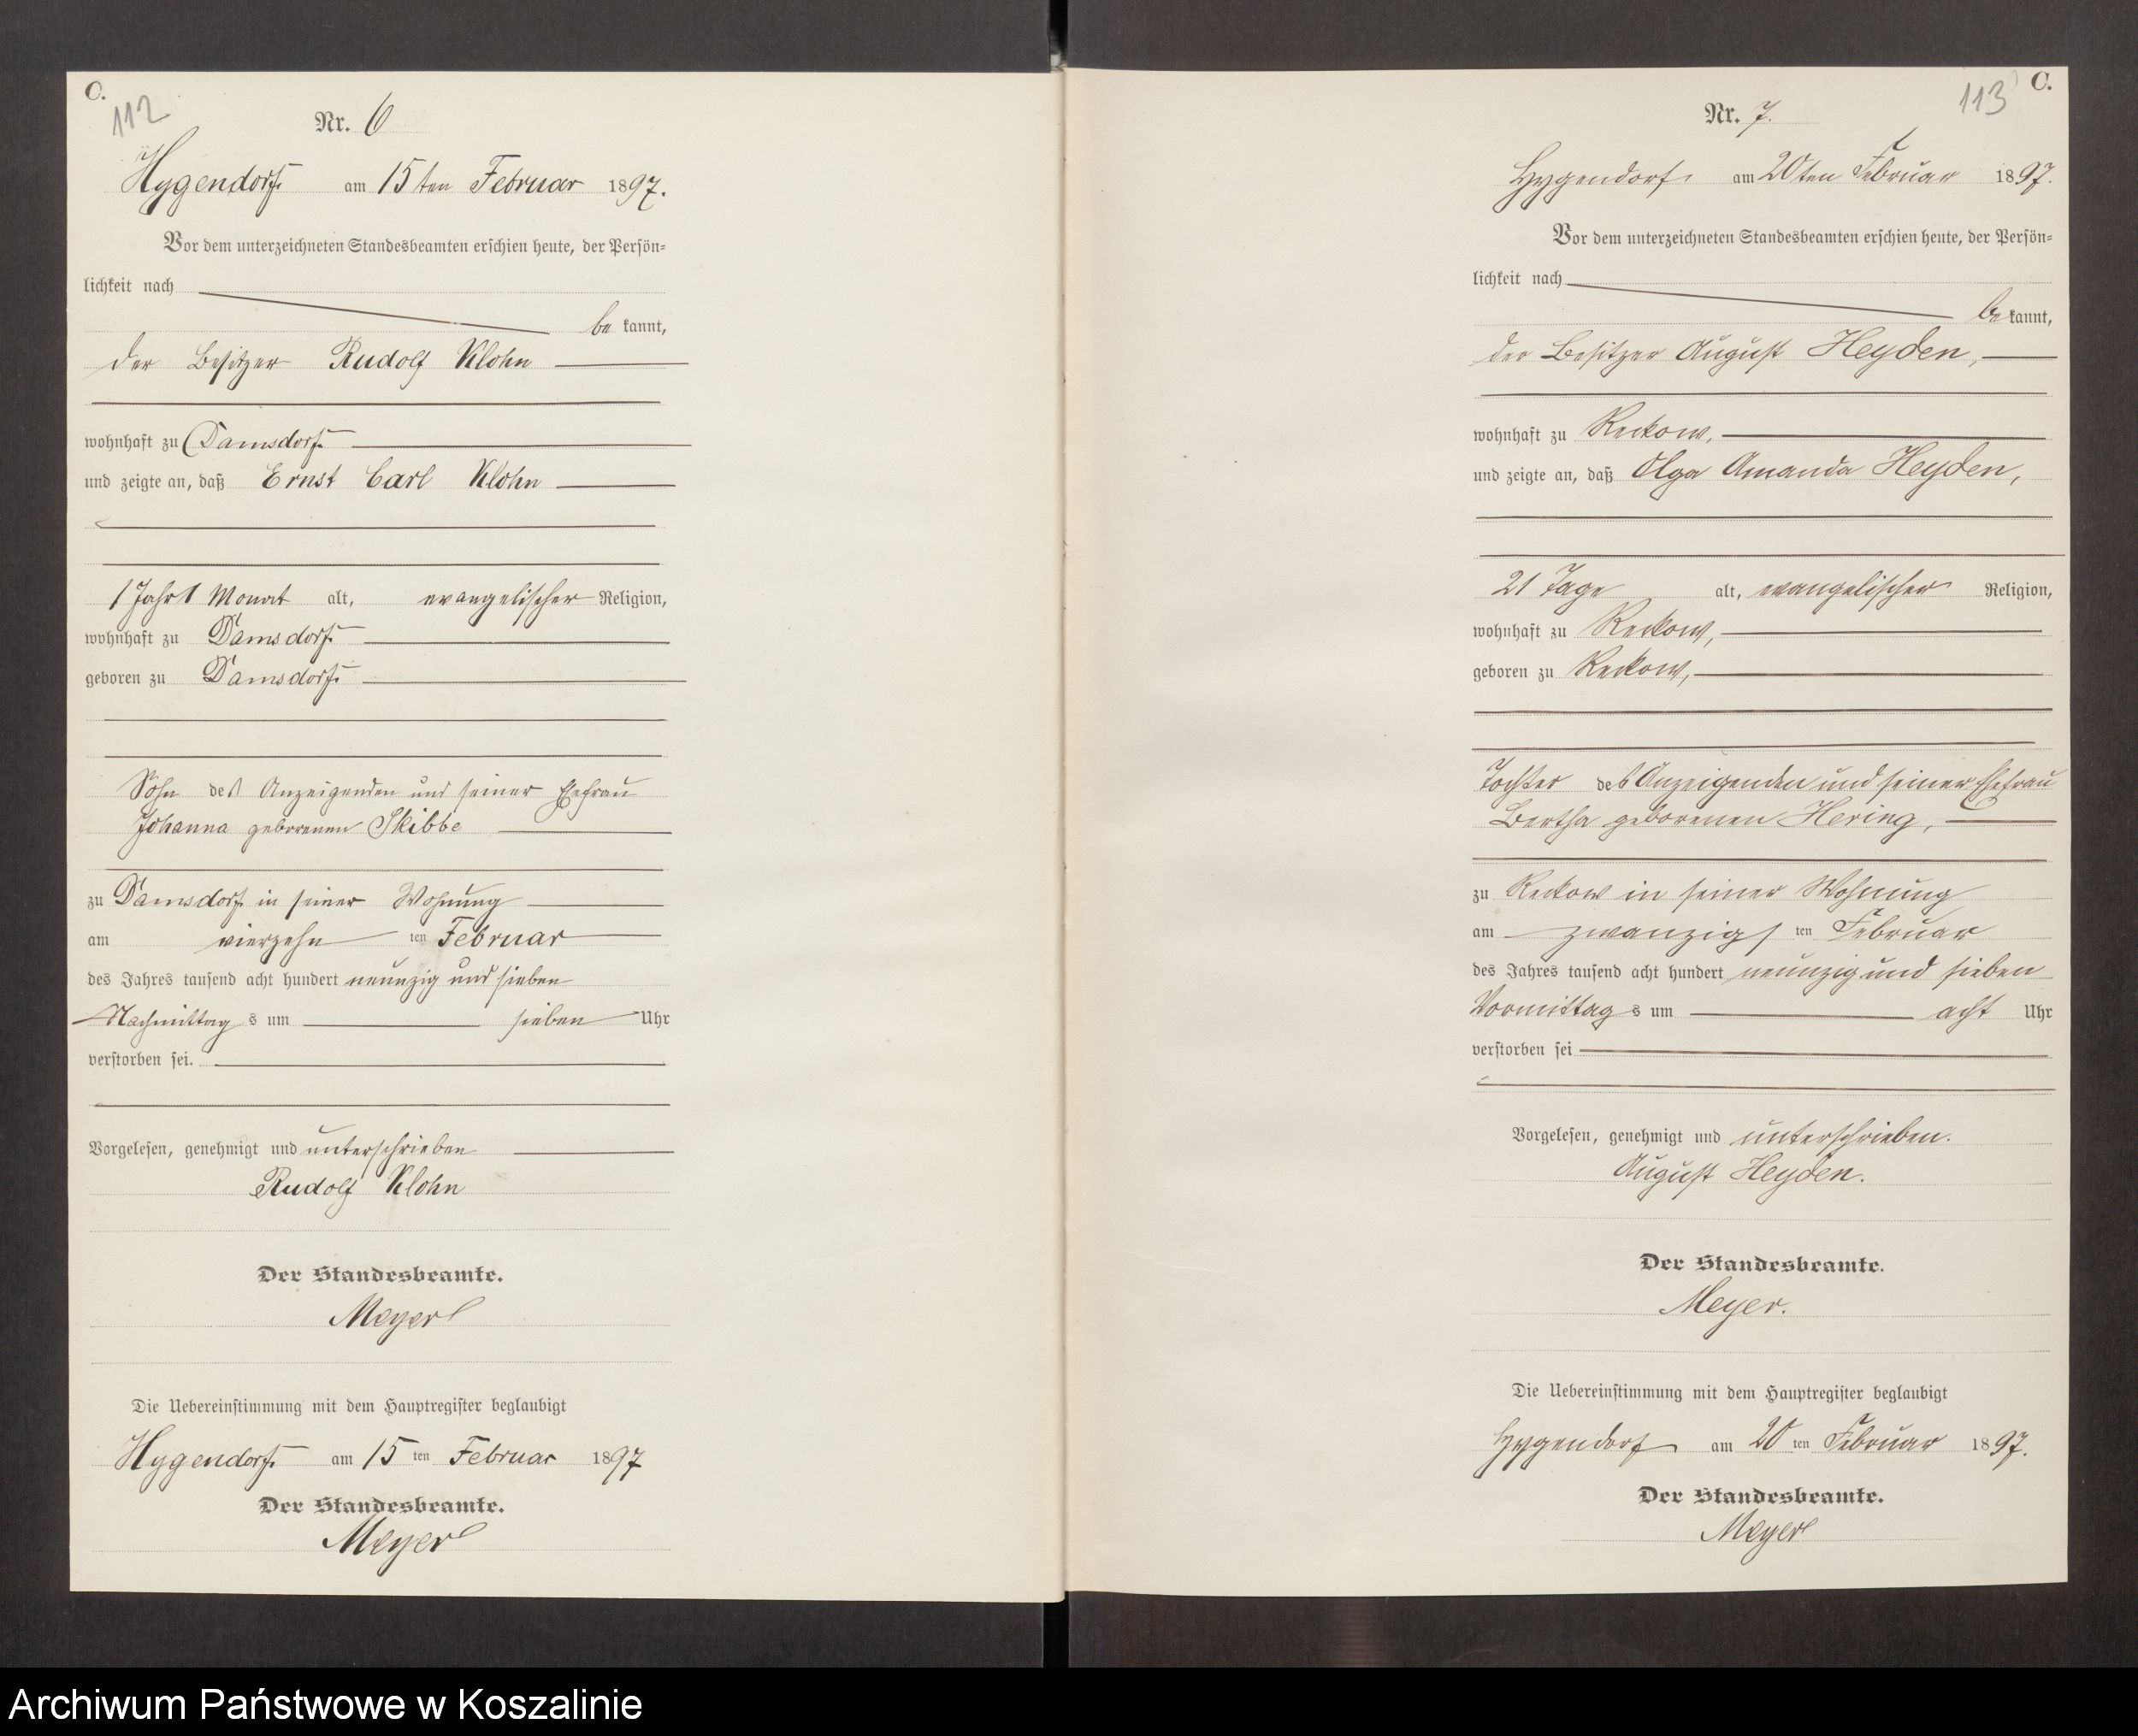 C.
112
Nr. 6
Hygendorf am 15ten Februar 1897.
Vor dem unterzeichneten Standesbeamten erschien heute, der Persön=
lichkeit nach
be kannt,
der Besitzer Rudolf Klohn
wohnhaft zu Damsdorf
und zeigte an, daß Ernst Carl Klohn
1 Jahr 1 Monat alt, evangelischer Religion,
wohnhaft zu Damsdorf
geboren zu Damsdorf
Sohn des Anzeigenden und seiner Ehefrau
Johanna geborenen Skibbe
zu Damsdorf in seiner Wohnung
am vierzehn ten Februar
des Jahres tausend acht hundert neunzig und sieben
Nachmittag s um sieben Uhr
verstorben sei.
Vorgelesen, genehmigt und unterschrieben
Rudolf Klohn
Der Standesbeamte.
Meyer
Die Uebereinstimmung mit dem Hauptregister beglaubigt
Hygendorf am 15 ten Februar 1897
Der Standesbeamte.
Meyer
C.
113
Nr. 7.
Hygendorf am 20ten Februar 1897.
Vor dem unterzeichneten Standesbeamten erschien heute, der Persön=
lichkeit nach
be kannt,
der Besitzer August Heyden,
wohnhaft zu Reckow,
und zeigte an, daß Olga Amanda Heyden,
21 Tage alt, evangelischer Religion,
wohnhaft zu Reckow,
geboren zu Reckow,
Tochter des Anzeigenden und seiner Ehefrau
Bertha geborenen Hering,
zu Reckow in seiner Wohnung
am zwanzigs ten Februar
des Jahres tausend acht hundert neunzig und sieben
Vormittag s um acht Uhr
verstorben sei
Vorgelesen, genehmigt und unterschrieben.
August Heyden.
Der Standesbeamte.
Meyer.
Die Uebereinstimmung mit dem Hauptregister beglaubigt
Hygendorf am 20 ten Februar 1897.
Der Standesbeamte.
Meyer
Archiwum Państwowe w Koszalinie